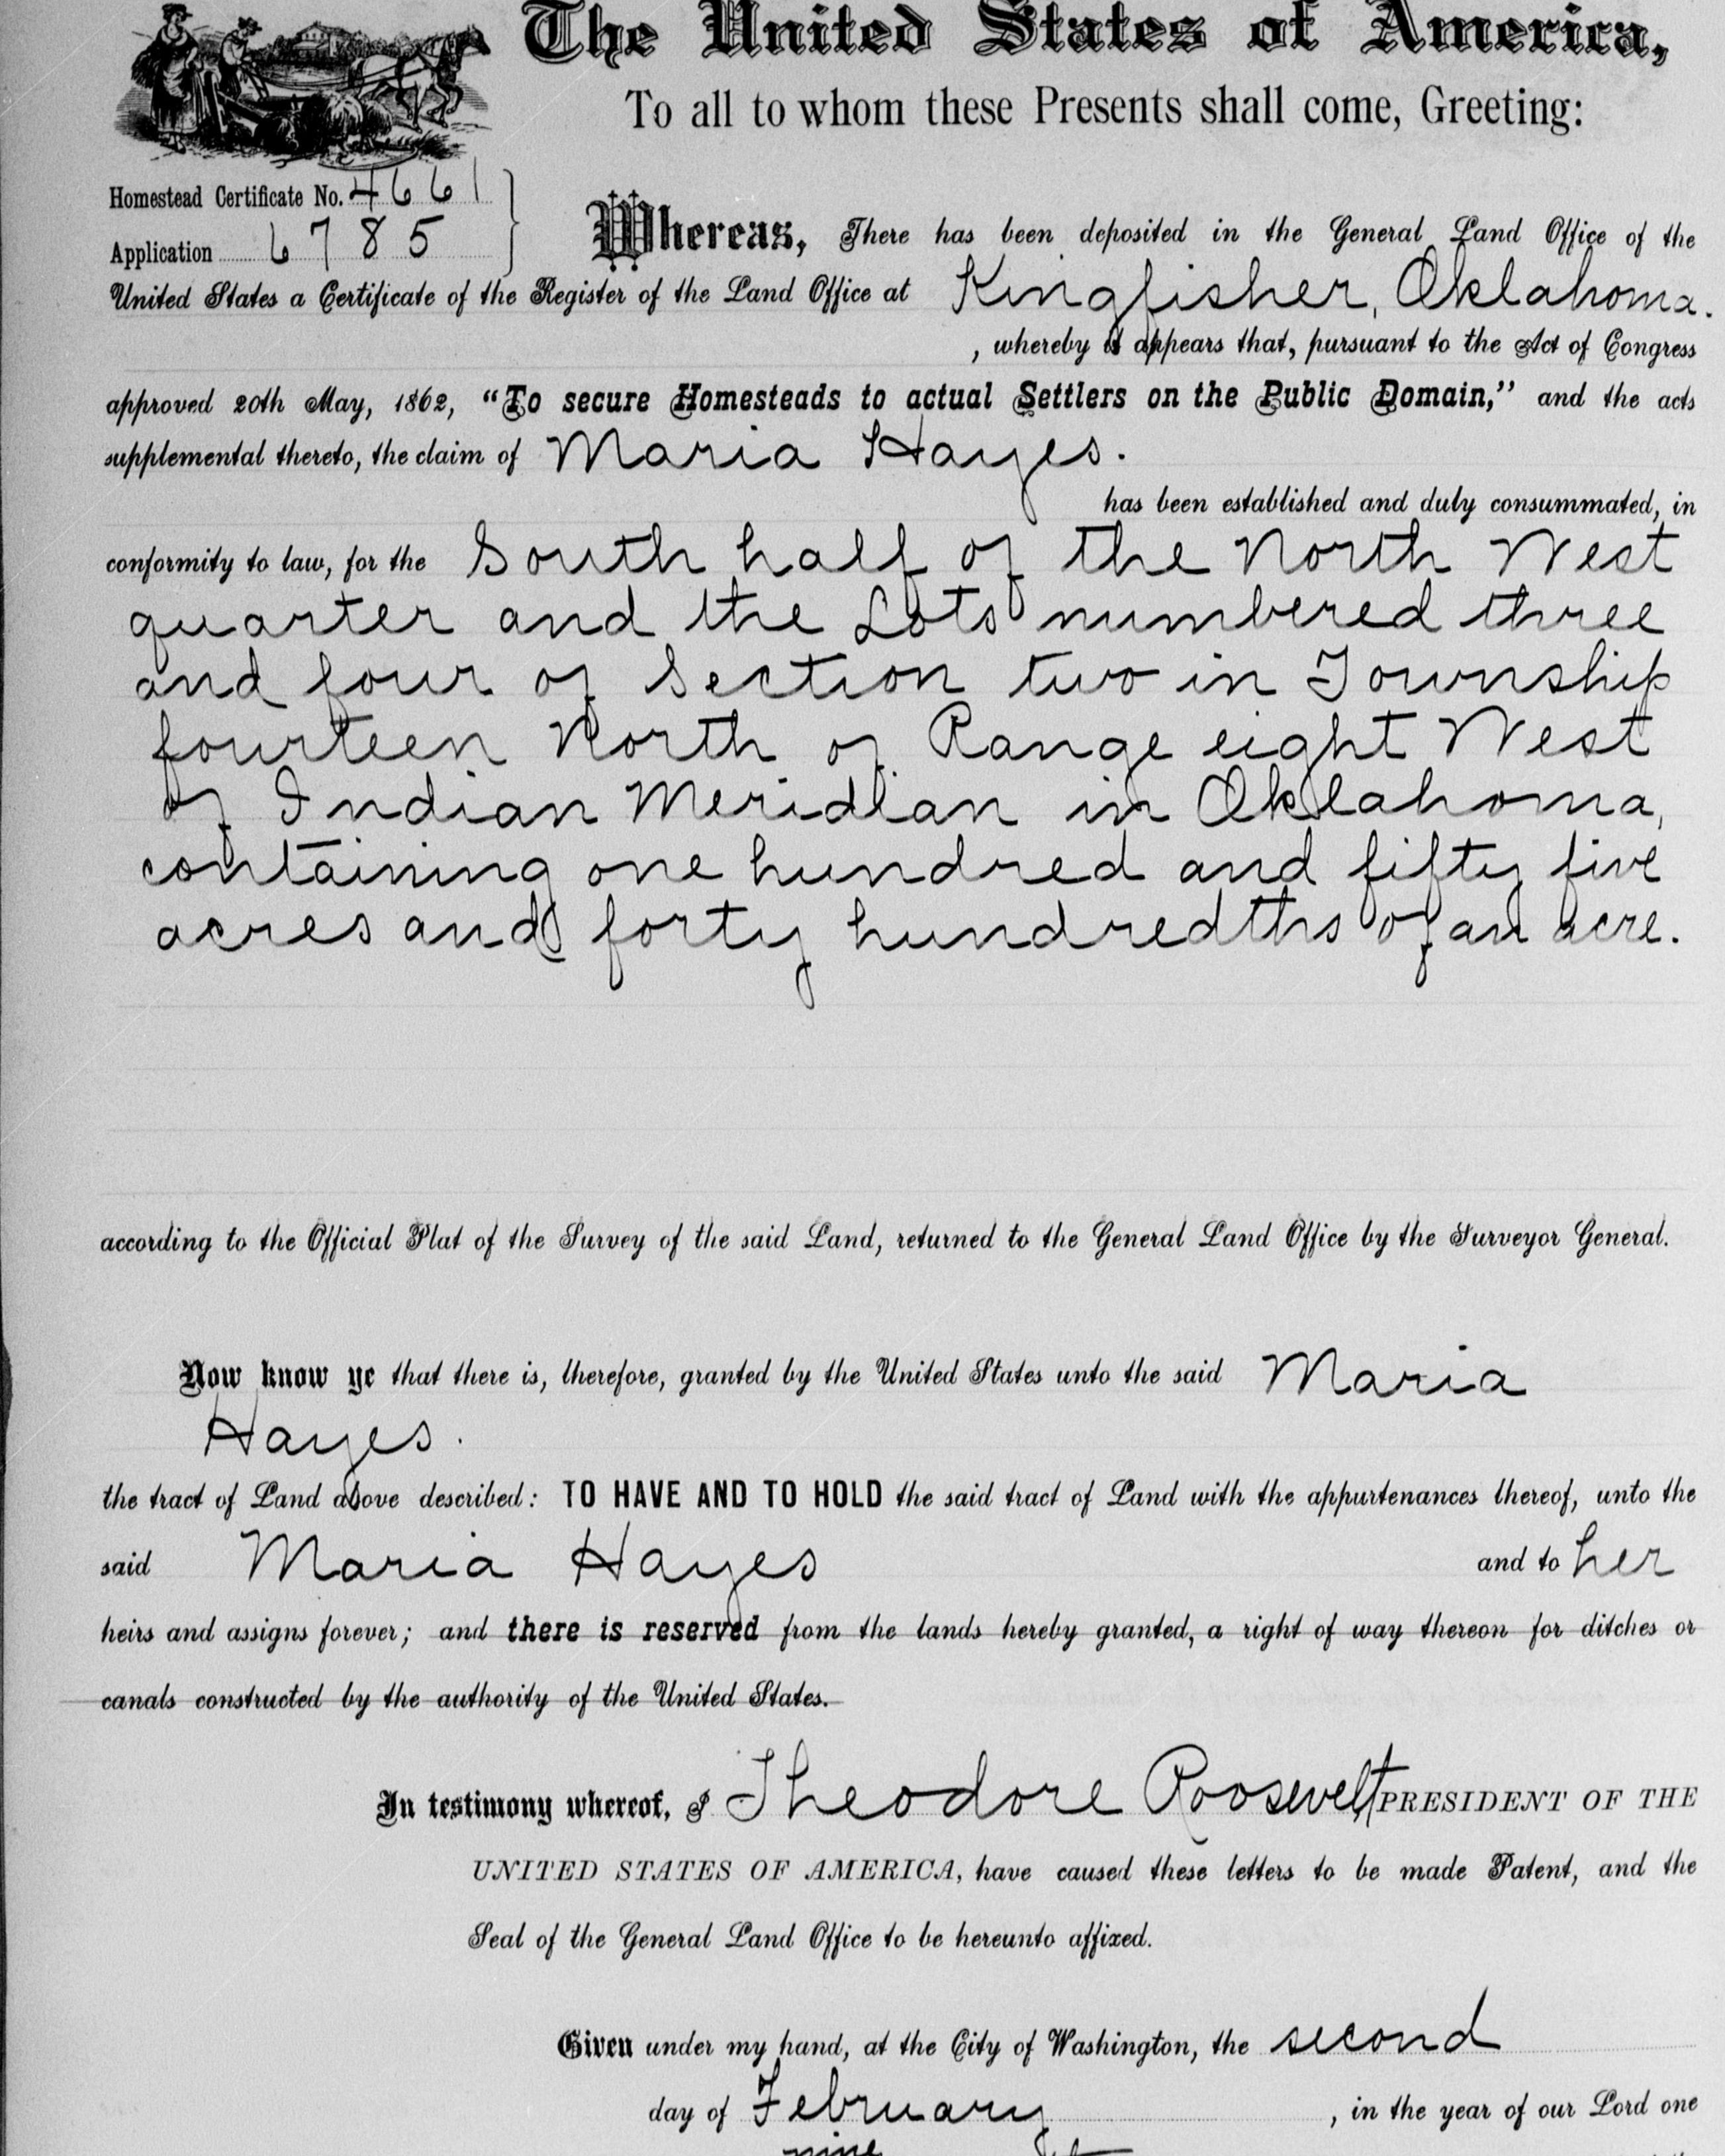 The United States of America,
To all to whom these Presents shall come, Greeting:
Homestead Certificate No. 4661
Application 6785
Whereas, There has been deposited in the General Land Office of the
United States a Certificate of the Register of the Land Office at Kingfisher, Oklahoma.
, whereby it appears that, pursuant to the Act of Congress
approved 20th May, 1862, "To secure Homesteads to actual Settlers on the Public Domain," and the acts
supplemental thereto, the claim of Maria Hayes.
has been established and duly consummated, in
conformity to law, for the South half of the North West
quarter and the Lots numbered three
and four of Section two in Township
fourteen North of Range eight West
of Indian Meridian in Oklahoma,
containing one hundred and fifty five
acres and forty hundredths of an acre.
according to the Official Plat of the Survey of the said Land, returned to the General Land Office by the Surveyor General.
Now know ye that there is, therefore, granted by the United States unto the said Maria
Hayes.
the tract of Land above described: TO HAVE AND TO HOLD the said tract of Land with the appurtenances thereof, unto the
said Maria Hayes and to her
heirs and assigns forever; and there is reserved from the lands hereby granted, a right of way thereon for ditches or
canals constructed by the authority of the United States.
In testimony whereof, I Theodore Roosevelt PRESIDENT OF THE
UNITED STATES OF AMERICA, have caused these letters to be made Patent, and the
Seal of the General Land Office to be hereunto affixed.
Given under my hand, at the City of Washington, the second
day of February, in the year of our Lord one
nine